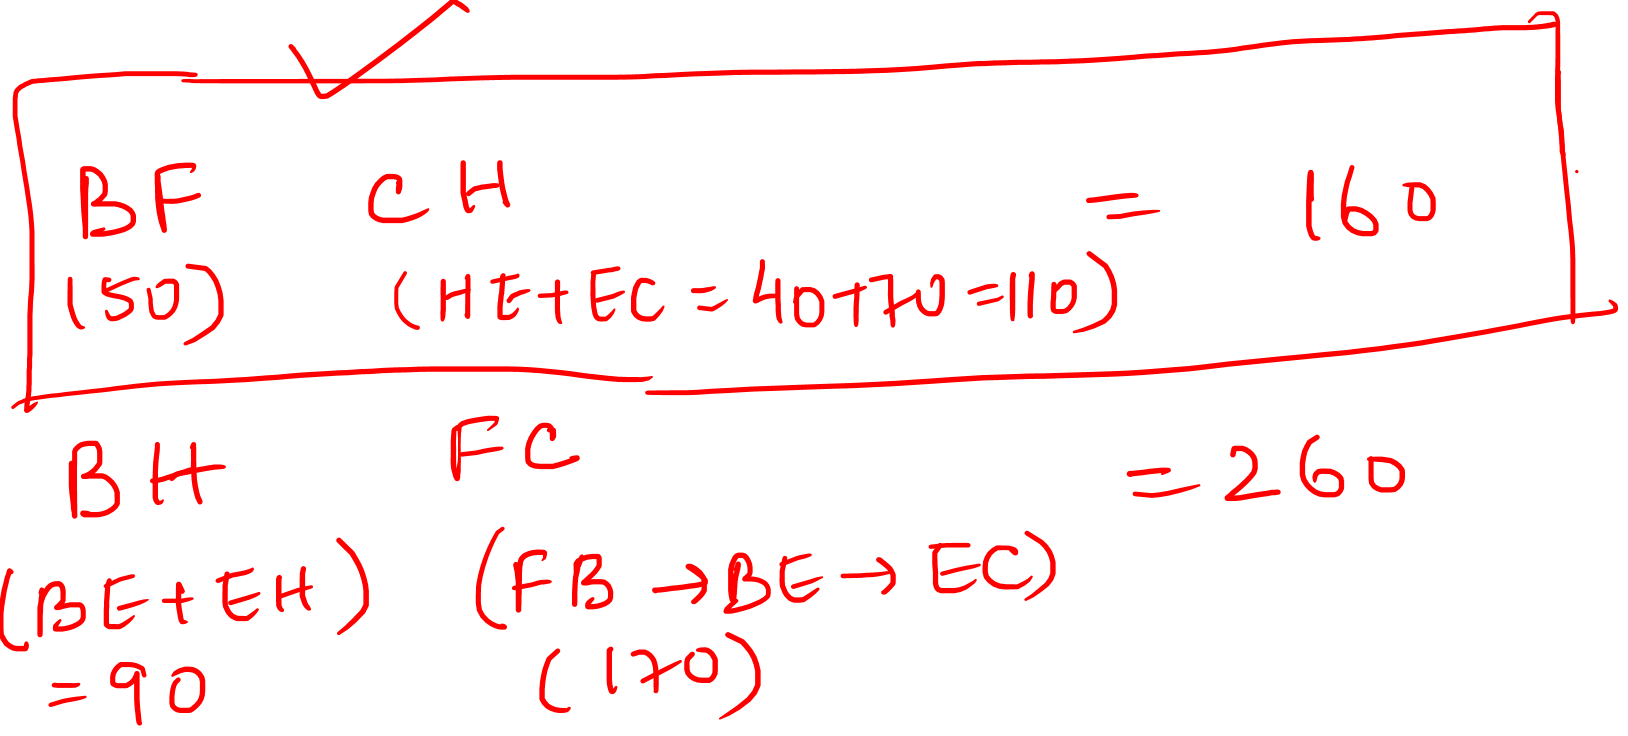 BF CH = 160
(50) (HE+EC = 40+70 =110)
BH FC = 260
(BE+EH) (FB → BE → EC)
= 90 (170)